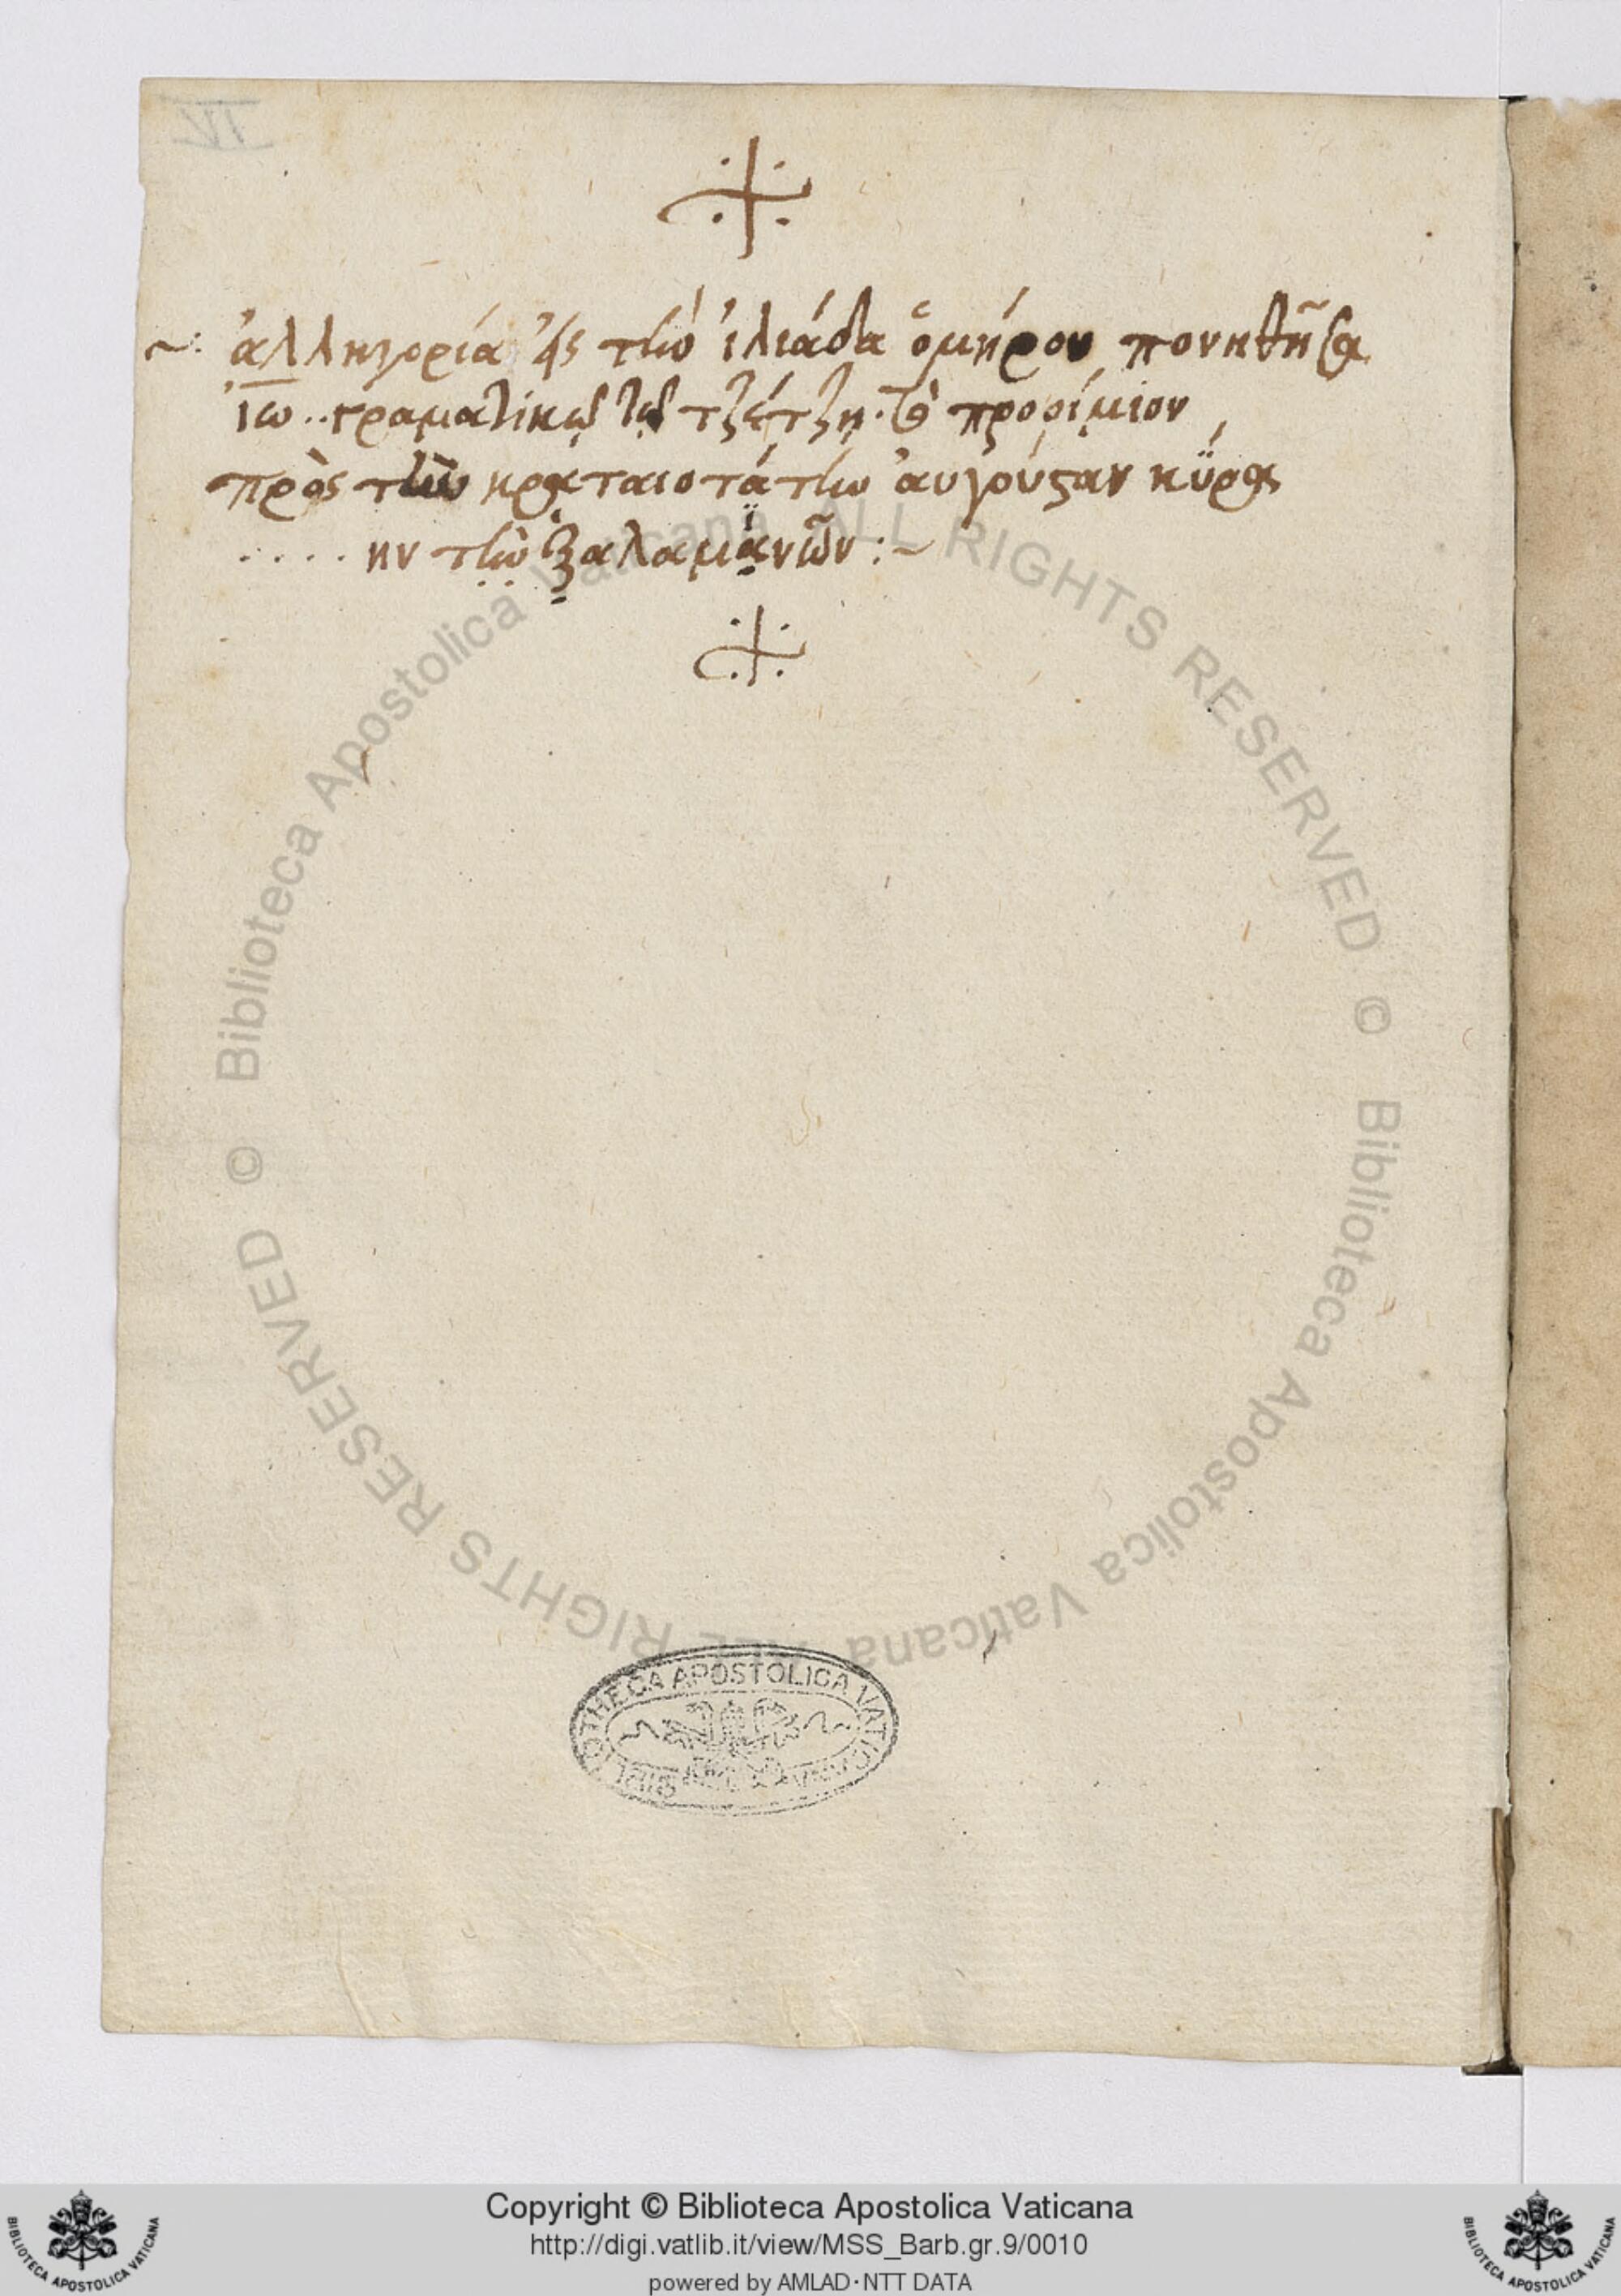 IV
~: ἀλληγορία εἰς τὴν ἰλιάδα ὁμήρου πονηθῆσα
ἰω.. γραματικῶ τῶ τζέτζη. τὸ προοίμιον
πρὸς τὴν κραταιοτάτην ἀυγούσταν κϋρὰς
.....ην τὴν ἐξ ἀλαμανῶν :~
© Biblioteca Apostolica Vaticana ALL RIGHTS RESERVED © Biblioteca Apostolica Vaticana ALL RIGHTS RESERVED
BIBLIOTHECA APOSTOLICA VATICANA
Copyright © Biblioteca Apostolica Vaticana
http://digi.vatlib.it/view/MSS_Barb.gr.9/0010
powered by AMLAD·NTT DATA
BIBLIOTECA APOSTOLICA VATICANA
BIBLIOTECA APOSTOLICA VATICANA